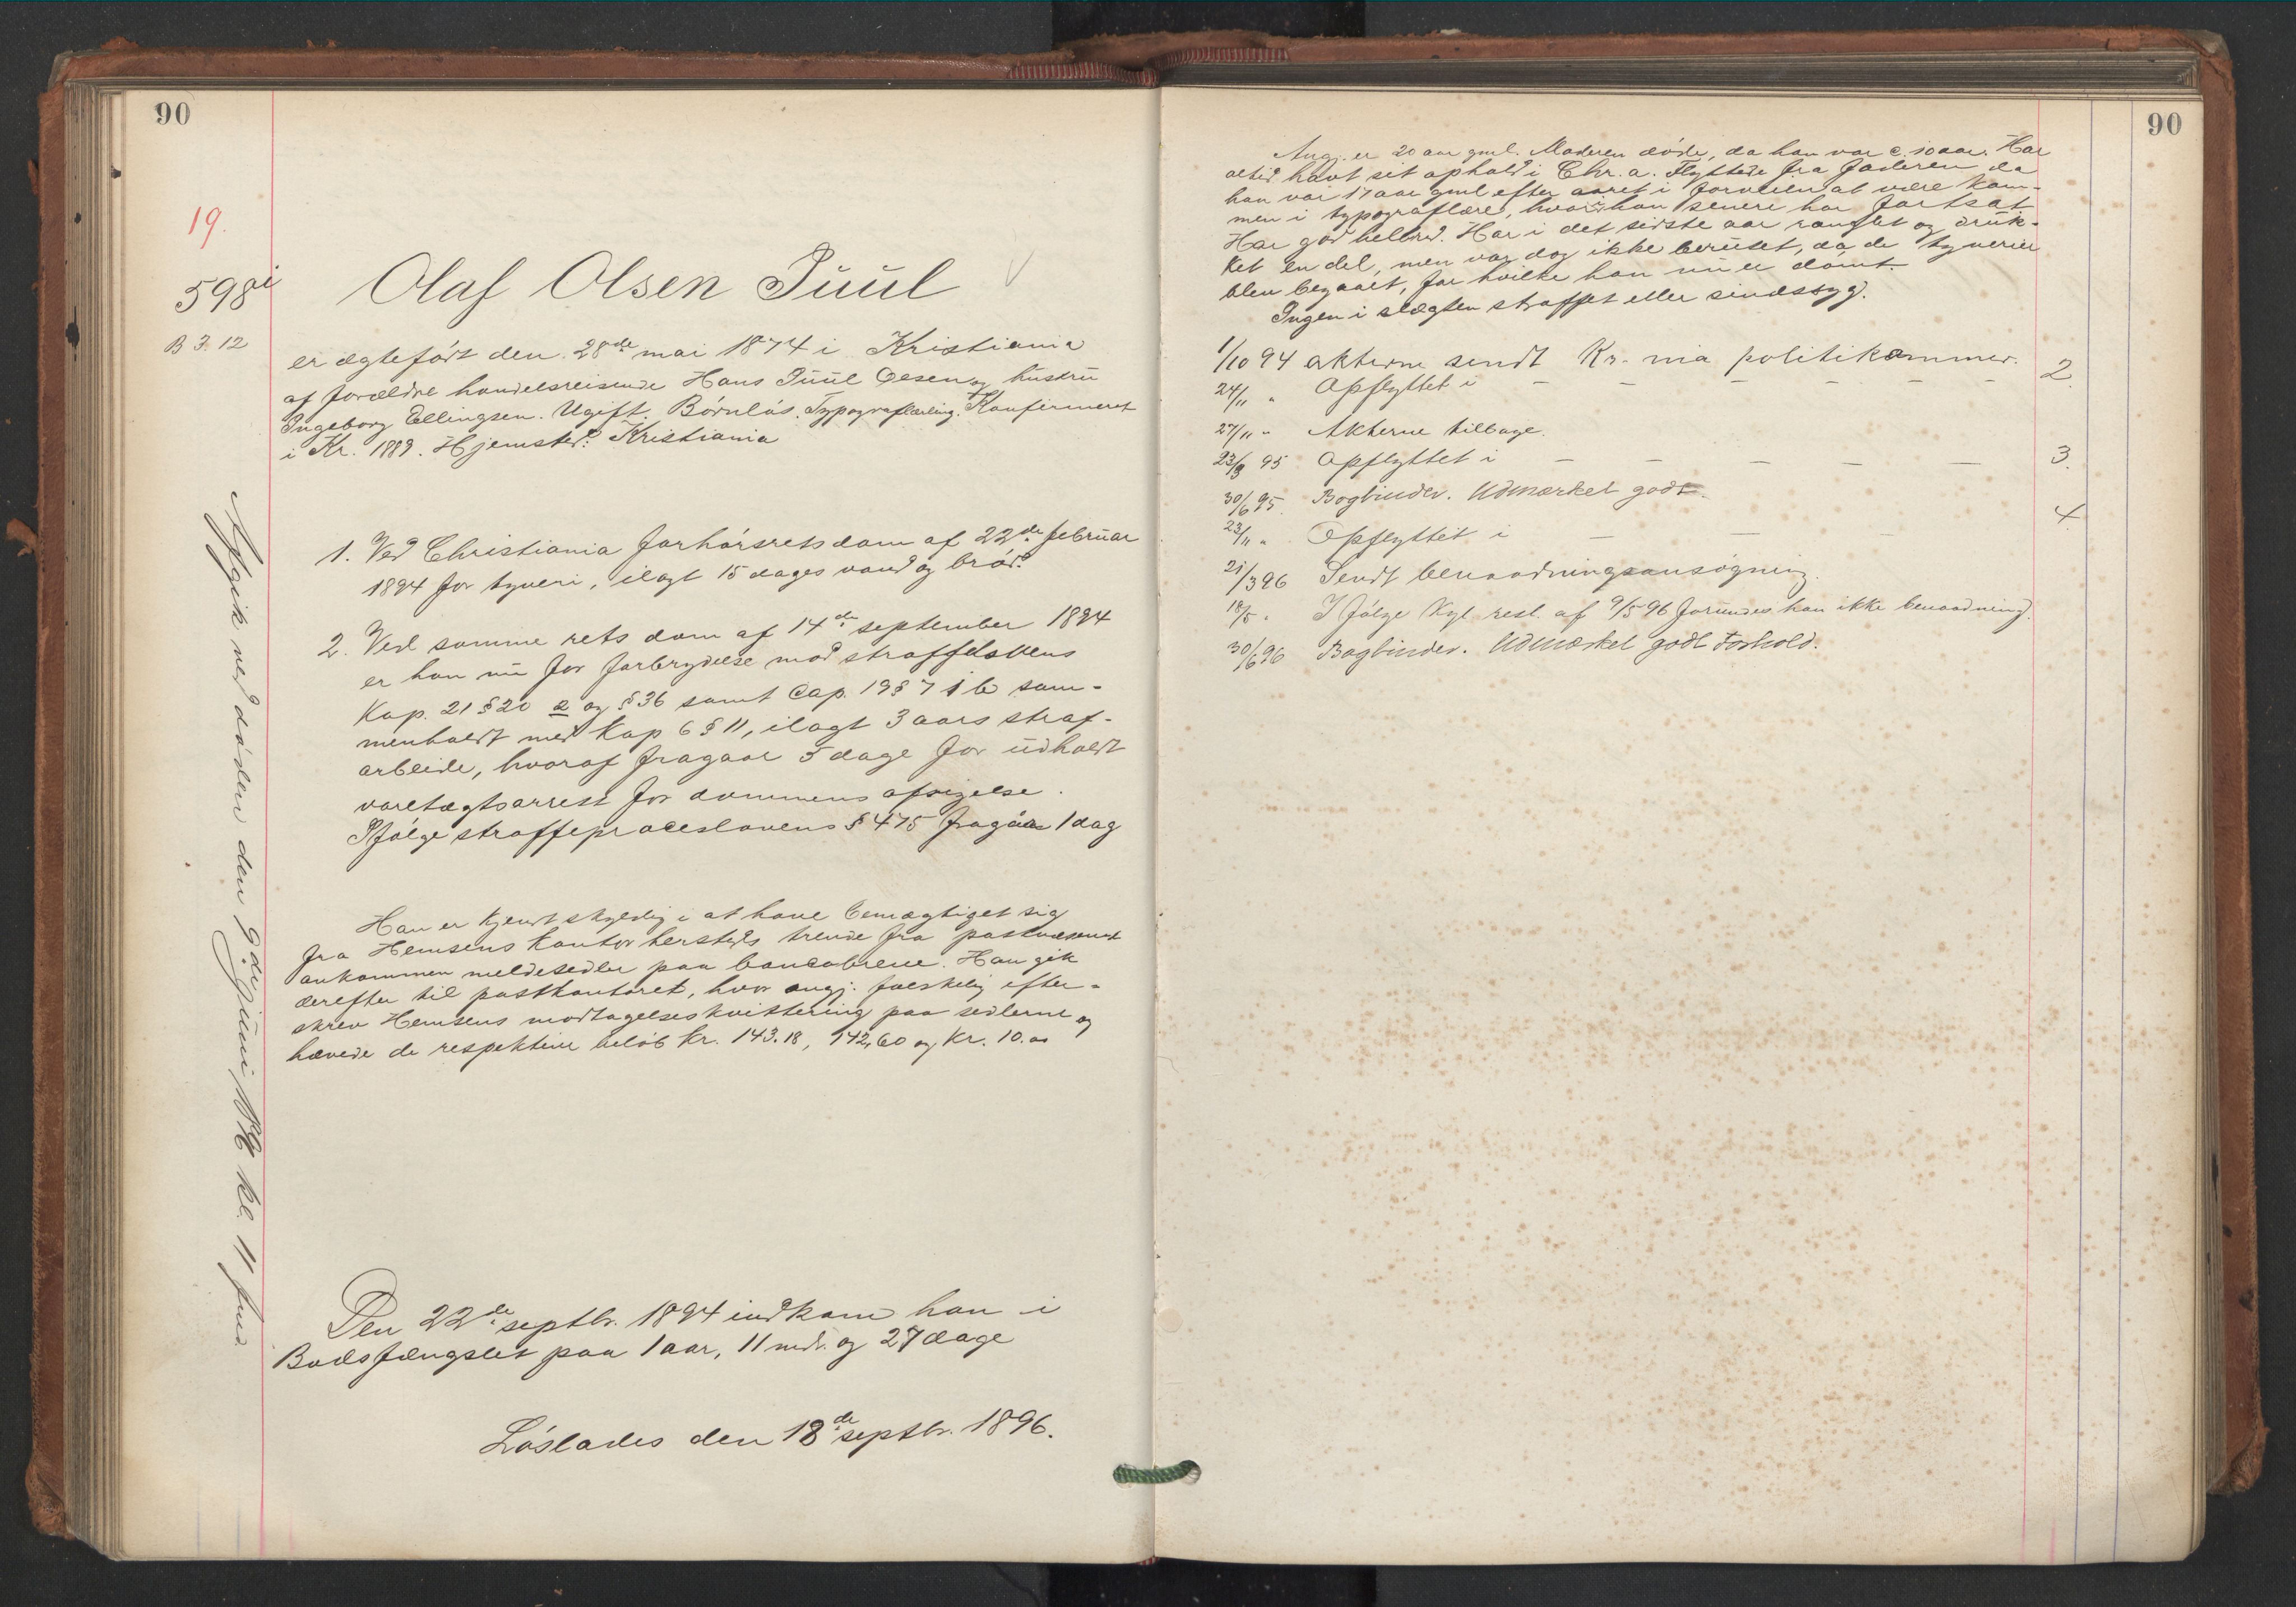 90
19.
598 i
B 3. 12
Olaf Olsen Juul
er ægtefødt den 28de mai 1874 i Kristiania
af forældre handelsreisende Hans Juul Olsen og hustru
Ingeborg Ellingsen. Ugift. Børnløs. Typograflærling. Konfirmeret
i Kr. 1889. Hjemsted: Kristiania
1. Ved Christiania forhørsrets dom af 22de februar
1894 for tyveri, ilagt 15 dages vand og brød.
2. Ved samme rets dom af 14de september 1894
er han nu for forbrydelse mod straffelovens
Kap. 21 § 20 2 og § 36 samt Cap. 19 § 7 i b sam-
menholdt med Kap 6 § 11, ilagt 3 aars straf-
arbeide, hvoraf fragaar 5 dage for udholdt
varetægtsarrest før dommens afsigelse.
Ifølge straffeproceslovens § 475 fragaar 1 dag
Han er kjendt skyldig i at have bemægtiget sig
fra Hemsens kontor hersteds trende fra postvæsenet
ankommen meldesedler paa bancobreve. Han gik
derefter til postkontoret, hvor angj. falskelig efter-
skrev Hemsens modtagelseskvittering paa sedlerne og
hævede de respektive beløb kr. 143.18, 142,60 og kr. 10.00
Den 22de septbr. 1894 indkom han i
Bodsfængslet paa 1 aar, 11 mdr. og 27 dage
Løslades den 18de septbr. 1896.
Afgik ved døden den 9de juni kl. 11 fmd.
90
Angj. er 20 aar gml. Moderen døde, da han var c. 10 aar. Har
altid havt sit ophold i Chr.a. Flyttede fra faderen da
han var 17 aar gml efter aaret i forveien at være kom-
men i typograflære, hvori han senere har fortsat
Har god helbred. Har i det sidste aar ranglet og druk-
ket en del, men var dog ikke beruset, da de tyverier
blev begaaet, for hvilke han nu er dømt.
Ingen i slægten straffet eller sindssyg.
1/10 94 akterne sendt Kr.nia politikammer.
24/11 " Opflyttet i - - - - - 2.
27/11 " Akterne tilbage.
23/3 95 Opflyttet i - - - - - 3.
30/6 95. Bogbinder. Udmærket godt.
23/11 " Opflyttet i - - - 4.
21/3 96 Sendt benaadningsansøgning.
18/5 " Ifølge Kgl. resl. af 9/5 96 forundes han ikke benaadning.
30/6 96 Bogbinder. Udmærket godt Forhold.